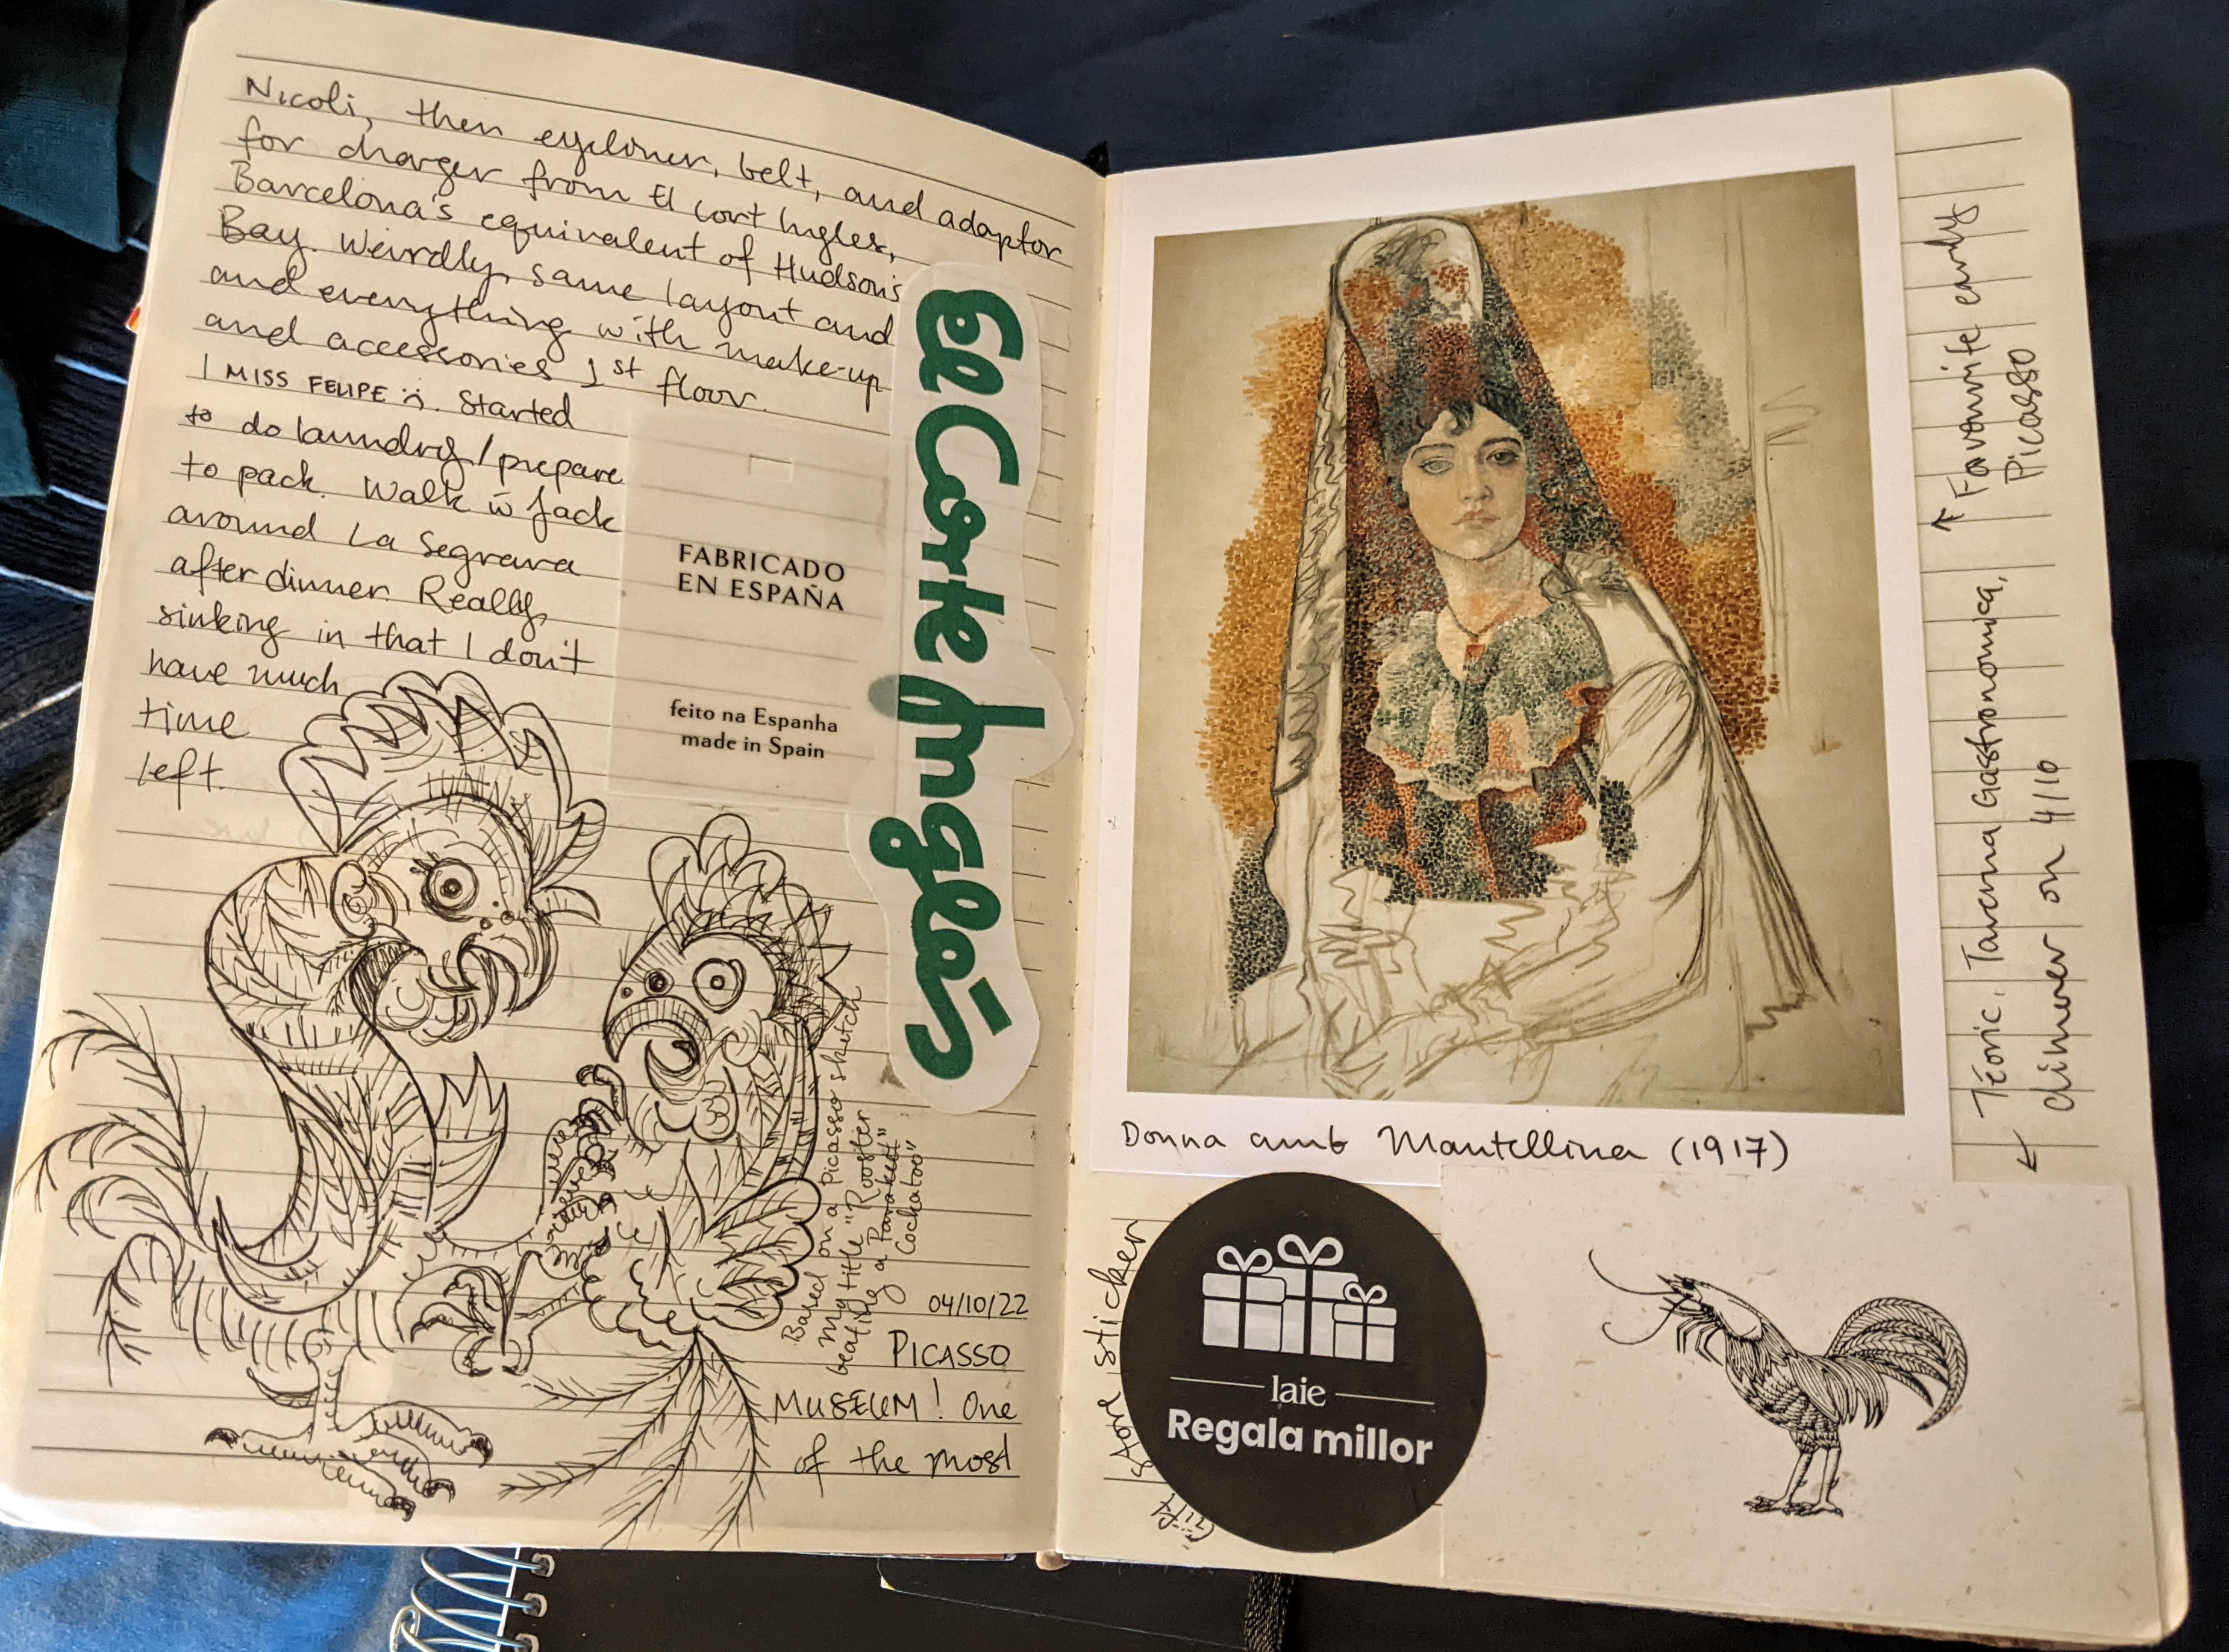 Nicoli, then eyeliner, belt, and adaptor
for charger from El Cort Ingles,
Barcelona's equivalent of Hudson's
Bay. Weirdly, same layout and
and everything with make-up
and accessories 1st floor.
I MISS FELIPE :(. Started
to do laundry/prepare
to pack. Walk w̄ Jack
around La Segrera
after dinner. Really
sinking in that I don't
have much
time
left.
FABRICADO
EN ESPAÑA
feito na Espanha
made in Spain
El Corte Inglés
Based on a Picasso sketch
my title "Rooster
beating a Parakeet"
Cockatoo"
04/10/22
PICASSO
MUSEUM! One
of the most
Donna amb Mantellina (1917)
↑ Favourite early
Picasso
← Téoric, Taverna Gastronomica,
dinner on 4/10
Gift store sticker
laie
Regala millor